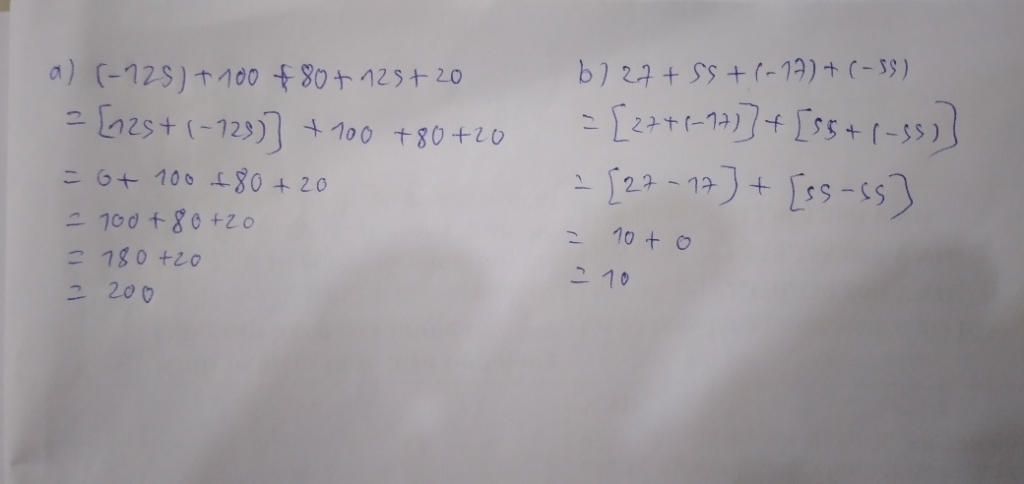 a) (-125) + 100 + 80 + 125 + 20
= [125 + (-125)] + 100 + 80 + 20
= 0 + 100 + 80 + 20
= 100 + 80 + 20
= 180 + 20
= 200
b) 27 + 55 + (-17) + (-55)
= [27 + (-17)] + [55 + (-55)]
= [27 - 17] + [55 - 55]
= 10 + 0
= 10